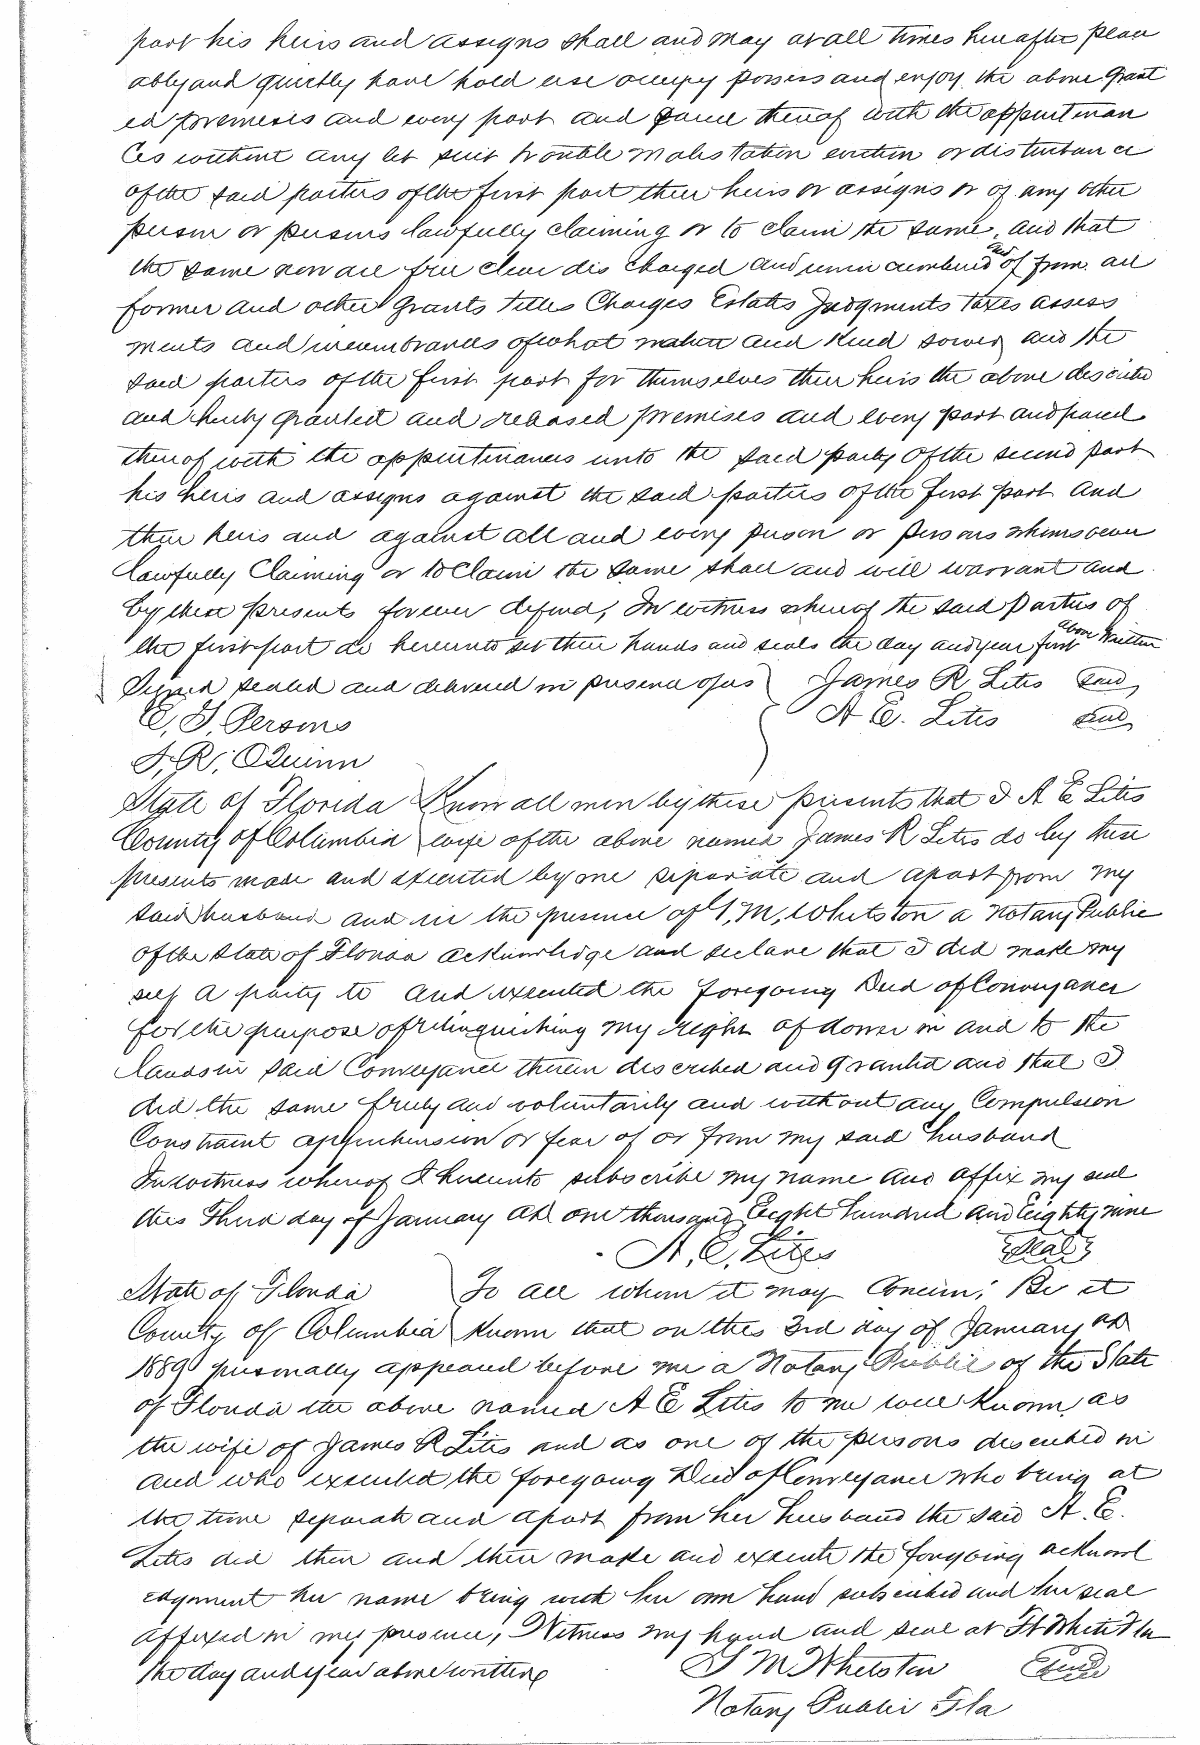 part his heirs and assigns shall and may at all times hereafter peace
ably and quietly have hold use occupy possess and enjoy the above grant
ed premesis and every part and parcel thereof with the appurtenan
ces without any let suit trouble molestation eviction or disturbance
of the said parties of the first part their heirs or assigns or of any other
person or persons lawfully claiming or to claim the same, and that
the same now are free clear discharged and unincumbered and of from all
former and other grants titles Charges Estates Judgments taxes assess
ments and incumbrances of what nature and Kind soever and the
said parties of the first part for themselves their heirs the above describe
and hereby granted and released premises and every part and parcel
thereof with the appurtenances unto the said party Of the second part
his heirs and assigns against the said parties of the first part and
their heirs and against all and every person or persons whomsoever
lawfully Claiming or to Claim the same shall and will warrant and
by these presents forever defend, In witness whereof the said Parties of
the first part do hereunto set their hands and seals the day and year first above Written
Signed sealed and delivered in presence of us James R Lites Seal
A E. Lites Seal
E, J, Persons
J. R, O Quinn
State of Florida Know all men by these presents that I A E Lites
County of Columbia wife of the above named James R Lites do by these
presents made and executed by me separate and apart from my
said husband and in the presence of S, M, Whetston a Notary Public
of the State of Florida acknowledge and declare that I did make my
self a party to and executed the foregoing Deed of Conveyance
for the purpose of relinquishing my right of dower in and to the
lands in said Conveyance therein described and granted and that I
did the same freely and voluntarily and without any Compulsion
Constraint apprehension or fear of or from my said husband
In witness whereof I hereunto subscribe my name and affix my seal
this Third day of January AD one thousand Eight hundred and Eighty nine
A. E. Lites Seal
State of Florida To all whom it may Concern; Be it
County of Columbia Known that on this 3rd day of January AD
1889 personally appeared before me a Notary Public of the State
of Florida the above named A E Lites to me well Known, as
the wife of James R Lites and as one of the persons described in
and who executed the foregoing Deed of Conveyance who being at
the time separate and apart from her husband the said A. E.
Lites did then and there make and execute the forgoing acknowl
edgment her name being with her own hand subscribed and her seal
affixed in my presence, Witness my hand and seal at Ft White Fla
the day and year above written S M Whetston Seal
Notary Public Fla